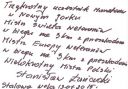 Trzykrotny uczestnik Maratonu
w Nowym Jorku
Mistrz Świata Weteranów
w biegu na 3 km z przeszkodami
Mistrz Europy Weteranów
w biegu na 3 km z przeszkodami
Wielokrotny Mistrz Polski
Stanisław
Stalowa Wola